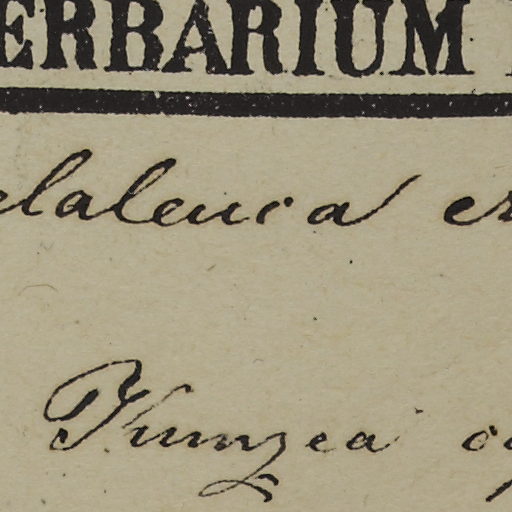 ERBARIUM
elaleuca er
Kunzea